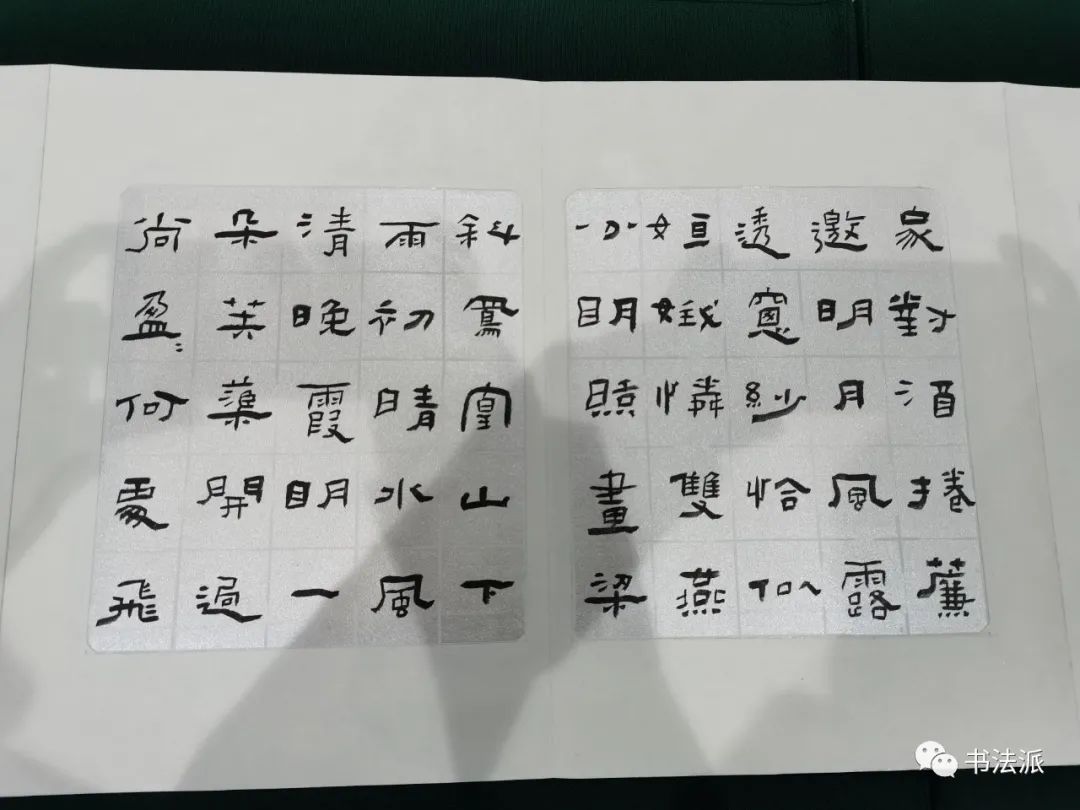 家對酒捲簾
邀明月風露
透窻紗恰似
姮娥憐雙燕
分明照畫梁
斜鳳凰山下
雨初晴水風
清晚霞明一
朵芙蕖開過
尚盈〻何處飛
书法派